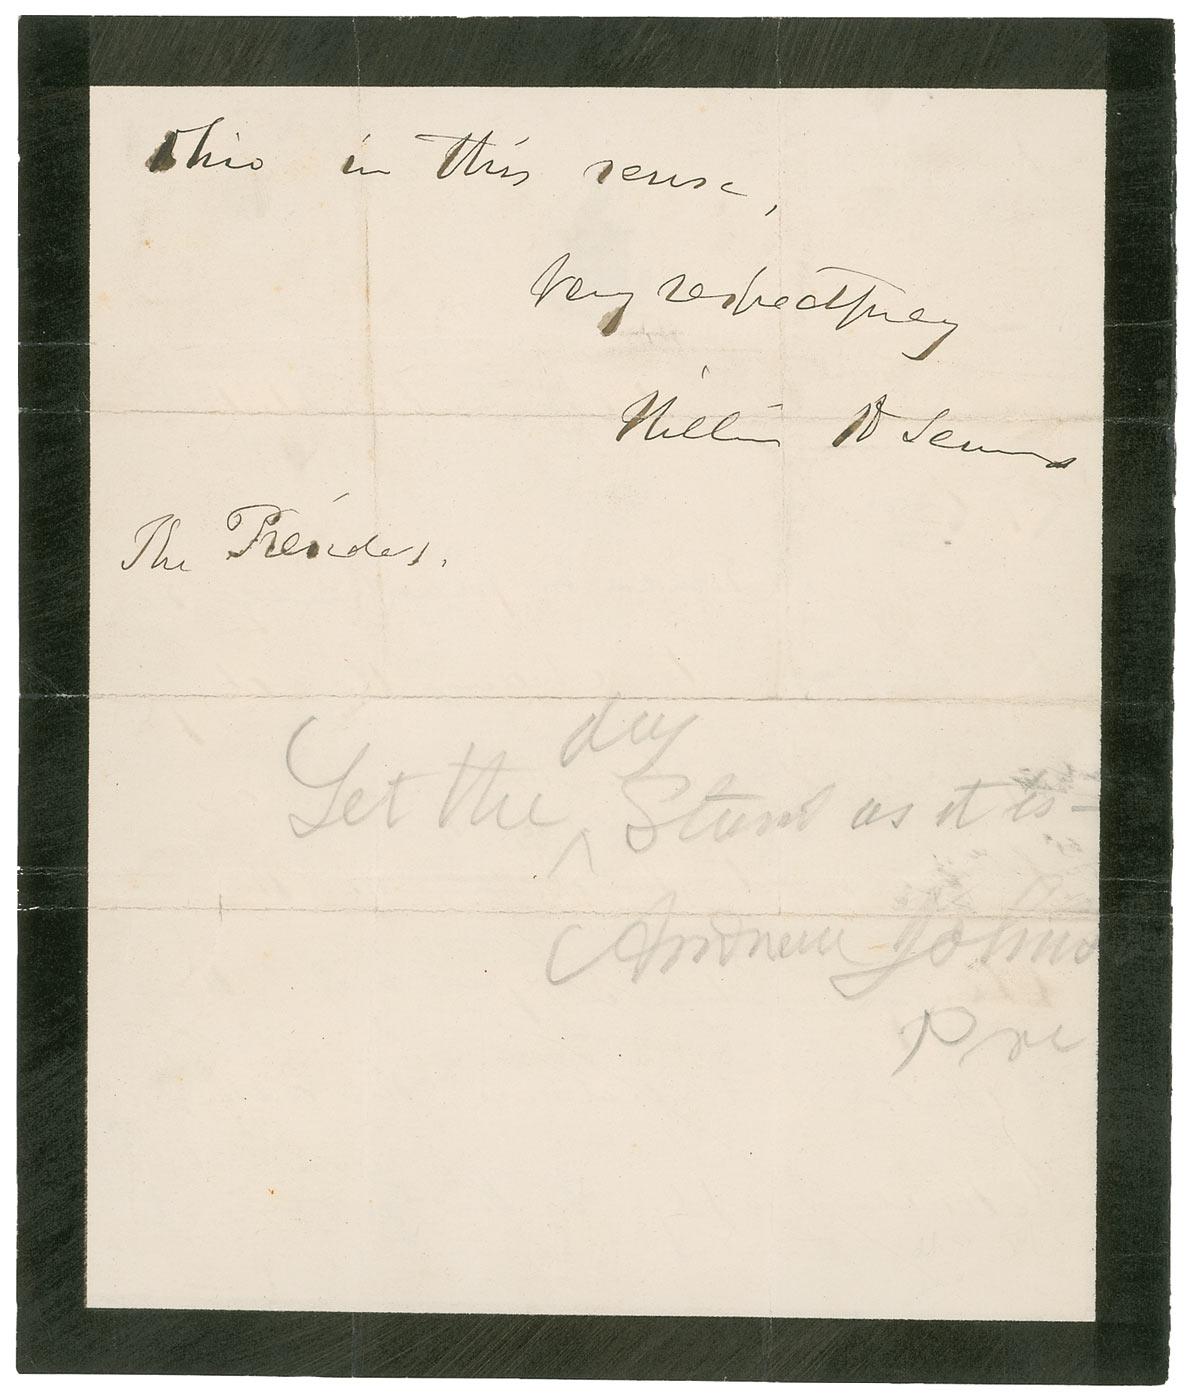 Ohio in this sense,
Very respectfully
William H Seward
The President.
Let the day Stand as it is -
Andrew Johns
Pre